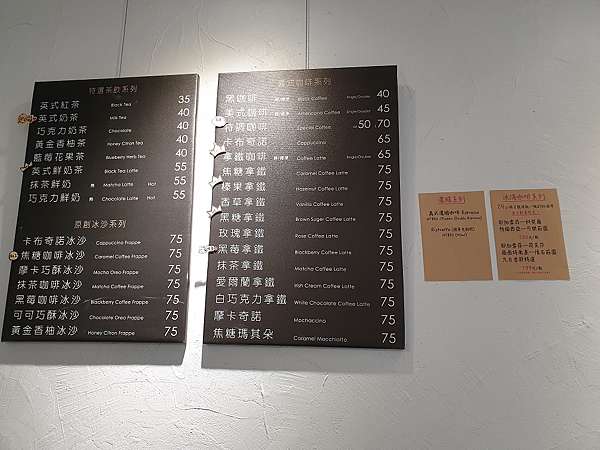 特選茶飲系列
英式紅茶 Black Tea 35
英式奶茶 Milk Tea 40
巧克力奶茶 Chocolate 40
黃金香柚茶 Honey Citron Tea 40
藍莓花果茶 Blueberry Herb Tea 40
英式鮮奶茶 Black Tea Latte 55
抹茶鮮奶 熱 Matcha Latte Hot 55
巧克力鮮奶 熱 Chocolate Latte Hot 55
原創冰沙系列
卡布奇諾冰沙 Cappuccino Frappe 75
焦糖咖啡冰沙 Caramel Coffee Frappe 75
摩卡巧酥冰沙 Mocha Oreo Frappe 75
抹茶咖啡冰沙 Matcha Coffee Frappe 75
黑莓咖啡冰沙 Blackberry Coffee Frappe 75
可可巧酥冰沙 Chocolate Oreo Frappe 75
黃金香柚冰沙 Honey Citron Frappe 75
咖啡系列
黑咖啡 Black Coffee Single/Double 40
美式咖啡 Americano Coffee Single/Double 45
特調咖啡 Special Coffee 50 70
卡布奇諾 Cappuccino 65
拿鐵咖啡 Coffee Latte Single/Double 65
焦糖拿鐵 Caramel Coffee Latte 75
榛果拿鐵 Hazelnut Coffee Latte 75
香草拿鐵 Vanilla Coffee Latte 75
黑糖拿鐵 Brown Sugar Coffee Latte 75
玫瑰拿鐵 Rose Coffee Latte 75
黑莓拿鐵 Blackberry Coffee Latte 75
抹茶拿鐵 Matcha Coffee Latte 75
愛爾蘭拿鐵 Irish Cream Coffee Latte 75
白巧克力拿鐵 White Chocolate Coffee Latte 75
摩卡奇諾 Mochaccino 75
焦糖瑪其朵 Caramel Macchiato 75
義式濃縮咖啡 Espresso
冰滴咖啡系列